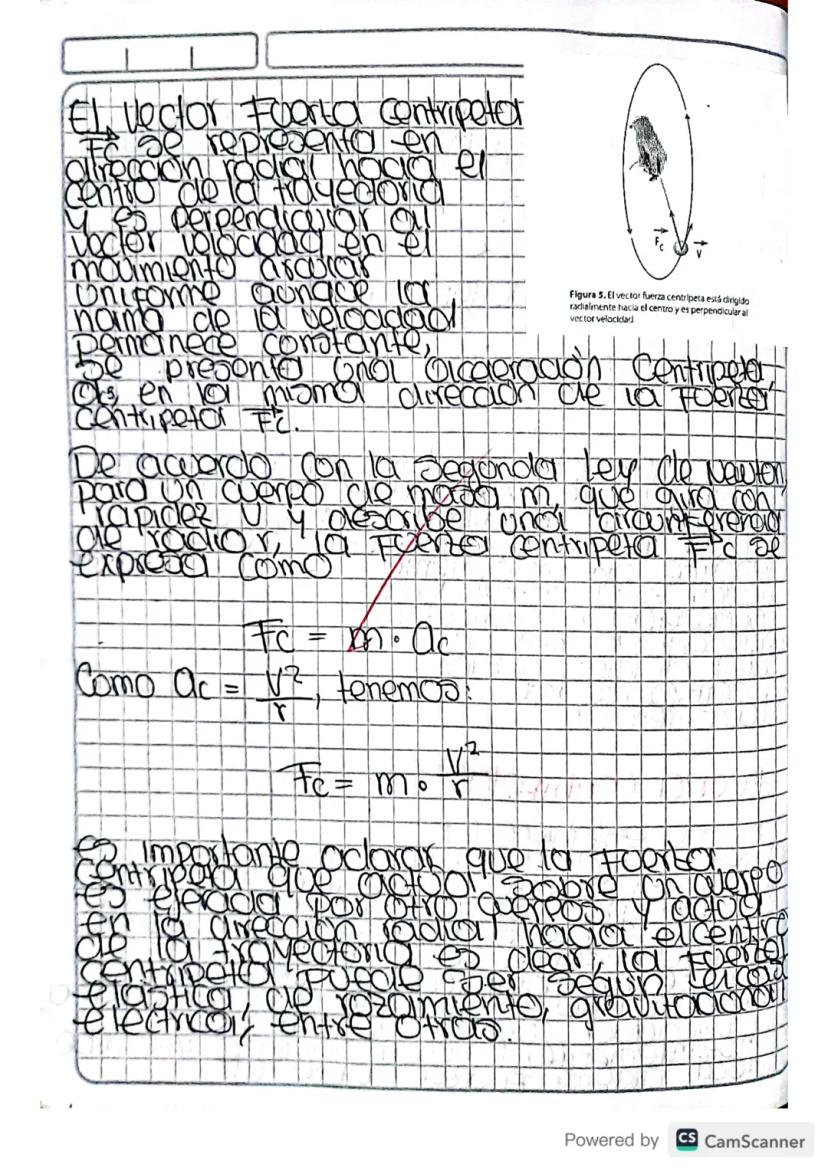 El vector Fuerza centripeta
Fc se representa en
dirección radial hacia el
centro de la trayectoria
y es perpendicular al
vector velocidad en el
movimiento circular
uniforme aunque la
norma de la velocidad
permanece constante,
se presenta una aceleración centripeta,
ac, en la misma dirección de la fuerza
centripeta Fc.
F⃗c
v⃗
Figura 5. El vector fuerza centrípeta está dirigido
radialmente hacia el centro y es perpendicular al
vector velocidad.
De acuerdo con la segunda ley de Newton
para un cuerpo de masa m, que gira con
rapidez v y describe una circunferencia
de radio r, la fuerza centripeta Fc se
expresa como
Fc = m · ac
Como ac = v²/r, tenemos:
Fc = m · v²/r
Es importante aclarar que la fuerza
centripeta que actua sobre un cuerpo
es ejercida por otro cuerpos y actua
en la dirección radial hacia el centro
de la trayectoria es decir, la fuerza
centripeta puede ser según el caso
elastica, de rozamiento, gravitacional
electrica, entre otras.
Powered by CS CamScanner